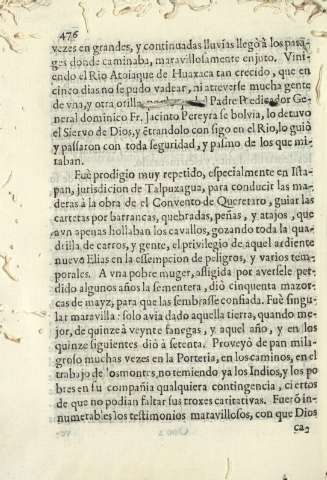 476
vezes en grandes, y continuadas lluvias llegò à los para-
ges donde caminaba, maravillosamente enjuto. Vini-
endo el Rio Atoiaque de Huaxaca tan crecido, que en
cinco dias no se pudo vadear, ni atreverse mucha gente
de vna, y otra orilla, el Padre Predicador Ge-
neral dominico Fr. Jacinto Pereyra se bolvia, lo detuvo
el Siervo de Dios, y ẽtrandolo con sigo en el Rio, lo guiò
y passaron con toda seguridad, y pasmo de los que mi-
raban.
Fuè prodigio muy repetido, especialmente en Ista-
pan, jurisdicion de Talpuzagua, para conducir las ma-
deras à la obra de el Convento de Queretaro, guiar las
carretas por barrancas, quebradas, peñas, y atajos, que
aun apenas hollaban los cavallos, gozando toda la qua-
drilla de carros, y gente, el privilegio de aquel ardiente
nuevo Elias en la essempcion de peligros, y varios tem-
porales. A vna pobre muger, afligida por aversele per-
dido algunos años la sementera, diò cinquenta mazor-
cas de mayz, para que las sembrasse confiada. Fuè singu-
lar maravilla: solo avia dado aquella tierra, quando me-
jor, de quinze à veynte fanegas, y aquel año, y en los
quinze siguientes diò à setenta. Proveyò de pan mila-
groso muchas vezes en la Porteria, en los caminos, en el
trabajo de l'osmontes, no temiendo ya los Indios, y los po
bres en su compañia qualquiera contingencia, ciertos
de que no podian faltar sus troxes caritativas. Fuerõ in-
numerables los testimonios maravillosos, con que Dios
ca-